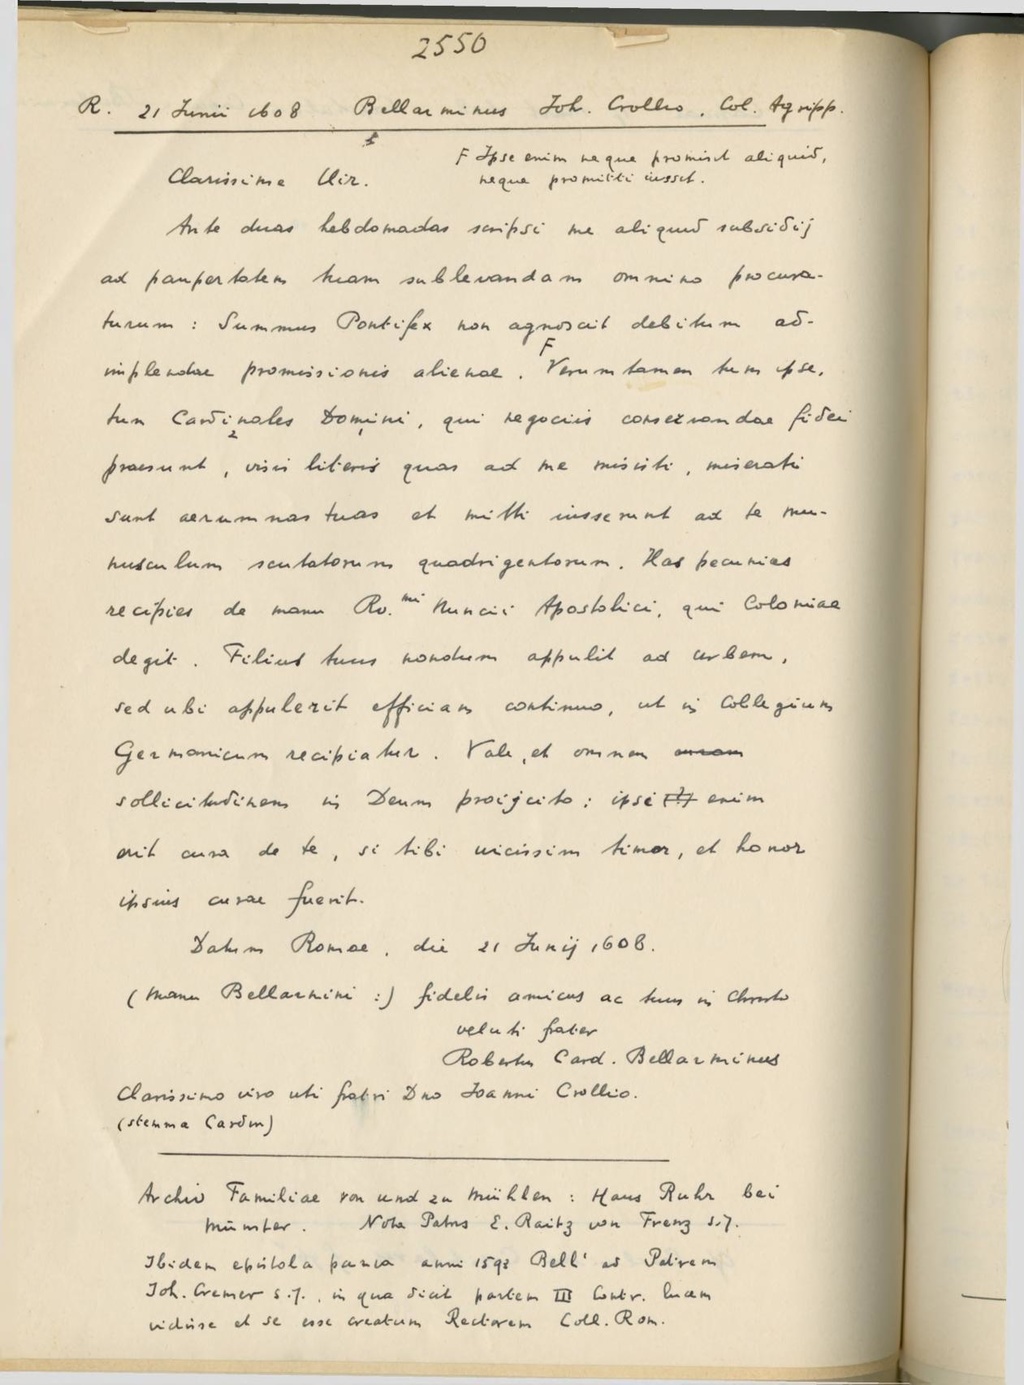 2550
R. 21 Junii 1608 Bellarminus Joh. Crollio, Col. Agripp.
F Ipse enim neque promisit aliquid,
neque promitti iussit.
Clarissime Vir.
Ante duas hebdomadas scripsi me aliquid subsidij
ad paupertatem tuam sublevandam omnino procura-
turum : Summus Pontifex non agnoscit debitum ad-
implendae promissionis alienae. F Verumtamen tum ipse,
tum Cardinales Domini, qui negociis conservandae fidei
2 1
praesunt, visis literis quas ad me misisti, miserati
sunt aerumnas tuas et mitti iusserunt ad te mu-
nusculum scutatorum quadrigentorum. Has pecunias
recipies de manu Rv.mi Nuncii Apostolici, qui Coloniae
degit. Filius tuus nondum appulit ad urbem,
sed ubi appulerit efficiam continuo, ut in Collegium
Germanicum recipiatur. Vale, et omnem curam
sollicitudinem in Deum proijcito ; ipsi (?) enim
erit cura de te, si tibi vicissim timor, et honor
ipsius curae fuerit.
Datum Romae, die 21 Junij 1608.
(manu Bellarmini :) fidelis amicus ac tuus in Christo
veluti frater
Robertus Card. Bellarminus
Clarissimo viro uti fratri Dno Joanni Crollio.
(stemma Cardin)
Archiv Familiae von und zu Mühlen : Haus Ruhr bei
Münster. Nota Patris E. Raitz von Frenz S.J.
Ibidem epistola parva anni 1592 Bell' ad Patrem
Joh. Cremer S.J., in qua dicit partem III Contr. lucem
vidisse et se esse creatum Rectorem Coll. Rom.